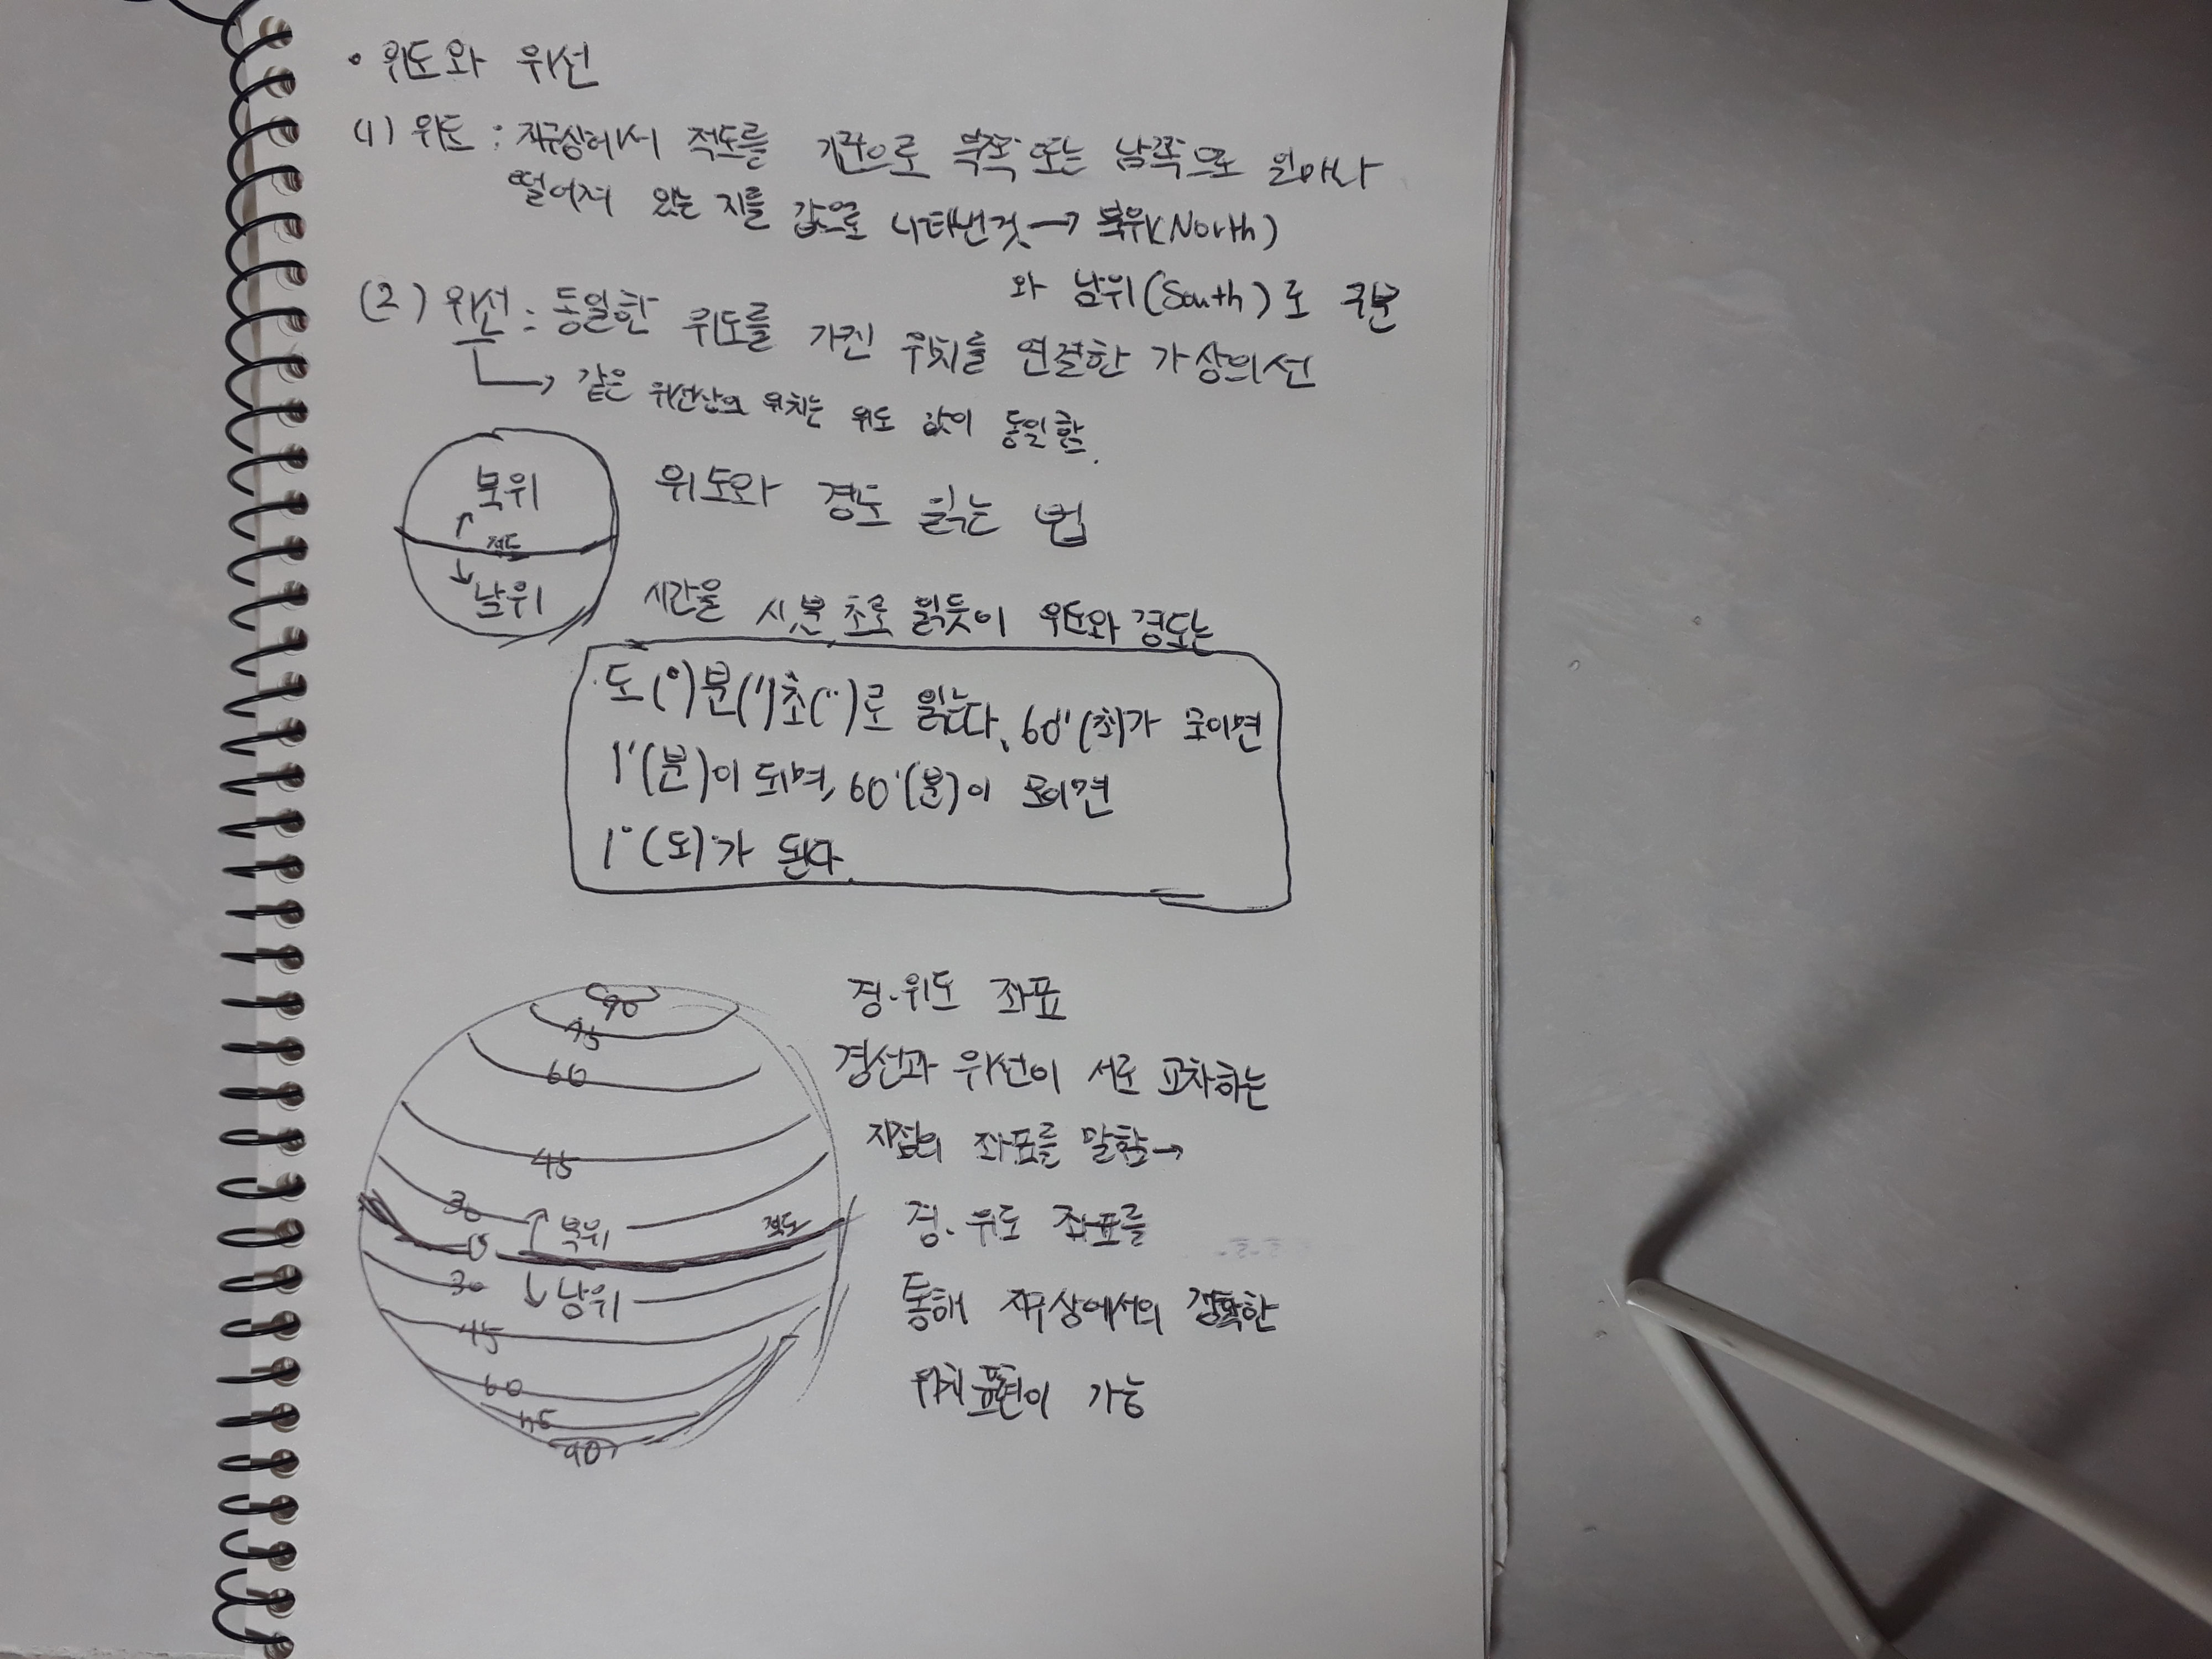 • 위도와 위선
(1) 위도 : 지구상에서 적도를 기준으로 북쪽 또는 남쪽으로 얼마나
떨어져 있는 지를 값으로 나타낸것 → 북위(North)
와 남위(South)로 구분
(2) 위선 : 동일한 위도를 가진 위치를 연결한 가상의선
→ 같은 위선상의 위치는 위도 값이 동일함.
북위
↑
적도
↓
남위
위도와 경도 읽는 법
시간을 시,분,초로 읽듯이 위도와 경도는
도(°)분(')초(")로 읽는다, 60'(초)가 모이면
1'(분)이 되며, 60'(분)이 모이면
1°(도)가 된다.
90
75
60
45
30 ↑ 북위 적도
0
30 ↓ 남위
45
60
75
90
경·위도 좌표
경선과 위선이 서로 교차하는
지점의 좌표를 말함→
경·위도 좌표를
통해 지구상에서의 정확한
위치표현이 가능